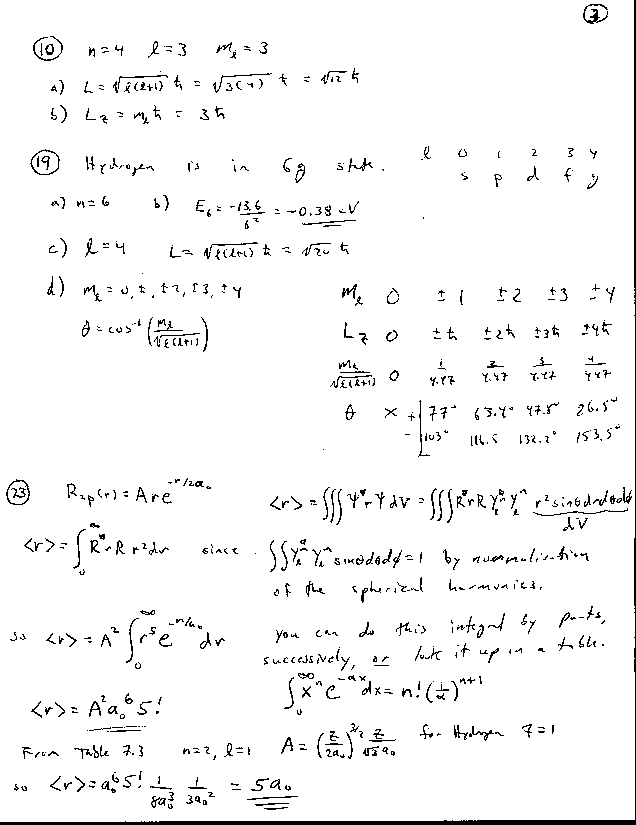 3
10 n=4 l=3 m_l=3
a) L = √(l(l+1)) ħ = √(3(4)) ħ = √12 ħ
b) L_z = m_l ħ = 3ħ
19 Hydrogen is in 6g state. l 0 1 2 3 4
s p d f g
a) n=6 b) E_6 = -13.6/6² = -0.38 eV
c) l=4 L = √(l(l+1)) ħ = √20 ħ
d) m_l = 0, ±, ±2, ±3, ±4
θ = cos⁻¹(m_l/√(l(l+1)))
m_l 0 ±1 ±2 ±3 ±4
L_z 0 ±ħ ±2ħ ±3ħ ±4ħ
m_l/√(l(l+1)) 0 1/4.47 2/4.47 3/4.47 4/4.47
θ × + 77° 63.4° 47.8° 26.5°
- 103° 116.5 132.2° 153.5°
23 R_2p(r) = A r e^(-r/2a₀) <r> = ∫∫∫ ψ* r ψ dV = ∫∫∫ R* r R Y_l^m* Y_l^m r² sinθ dr dθ dφ
dV
<r> = ∫₀^∞ R* r R r² dr since ∫∫ Y_l^m* Y_l^m sinθ dθ dφ = 1 by normalization
of the spherical harmonics.
so <r> = A² ∫₀^∞ r⁵ e^(-r/a₀) dr you can do this integral by parts,
successively, or look it up in a table.
∫₀^∞ x^n e^(-αx) dx = n! (1/α)^(n+1)
<r> = A² a₀⁶ 5!
From Table 7.3 n=2, l=1 A = (Z/2a₀)^(3/2) Z/(√3 a₀) for Hydrogen Z=1
so <r> = a₀⁶ 5! 1/(8a₀³) 1/(3a₀²) = 5a₀